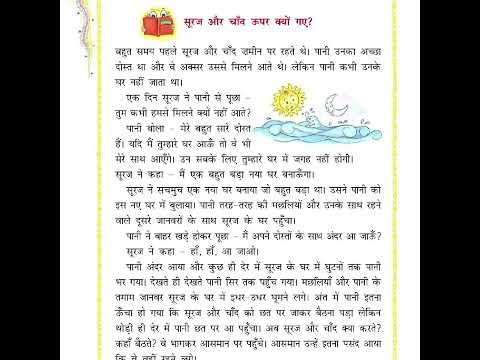 सूरज और चाँद ऊपर क्यों गए?
बहुत समय पहले सूरज और चाँद ज़मीन पर रहते थे। पानी उनका अच्छा
दोस्त था और वे अक्सर उससे मिलने आते थे। लेकिन पानी कभी उनके
घर नहीं जाता था।
एक दिन सूरज ने पानी से पूछा –
तुम कभी हमसे मिलने क्यों नहीं आते?
पानी बोला – मेरे बहुत सारे दोस्त
हैं। यदि मैं तुम्हारे घर आऊँ तो वे भी
मेरे साथ आएँगे। उन सबके लिए तुम्हारे घर में जगह नहीं होगी।
सूरज ने कहा – मैं एक बहुत बड़ा नया घर बनाऊँगा।
सूरज ने सचमुच एक नया घर बनाया जो बहुत बड़ा था। उसने पानी को
इस नए घर में बुलाया। पानी तरह-तरह की मछलियों और उनके साथ रहने
वाले दूसरे जानवरों के साथ सूरज के घर पहुँचा।
पानी ने बाहर खड़े होकर पूछा – मैं अपने दोस्तों के साथ अंदर आ जाऊँ?
सूरज ने कहा – हाँ, हाँ, आ जाओ।
पानी अंदर आया और कुछ ही देर में सूरज के घर में घुटनों तक पानी
भर गया। देखते ही देखते पानी सिर तक पहुँच गया। मछलियाँ और पानी के
तमाम जानवर सूरज के घर में इधर-उधर घूमने लगे। अंत में पानी इतना
ऊँचा हो गया कि सूरज और चाँद को छत पर जाकर बैठना पड़ा लेकिन
थोड़ी ही देर में पानी छत पर आ पहुँचा। अब सूरज और चाँद क्या करते?
कहाँ बैठते? वे भागकर आसमान पर पहुँचे। आसमान उन्हें इतना पसंद आया
कि वे वहीं रहने लगे।